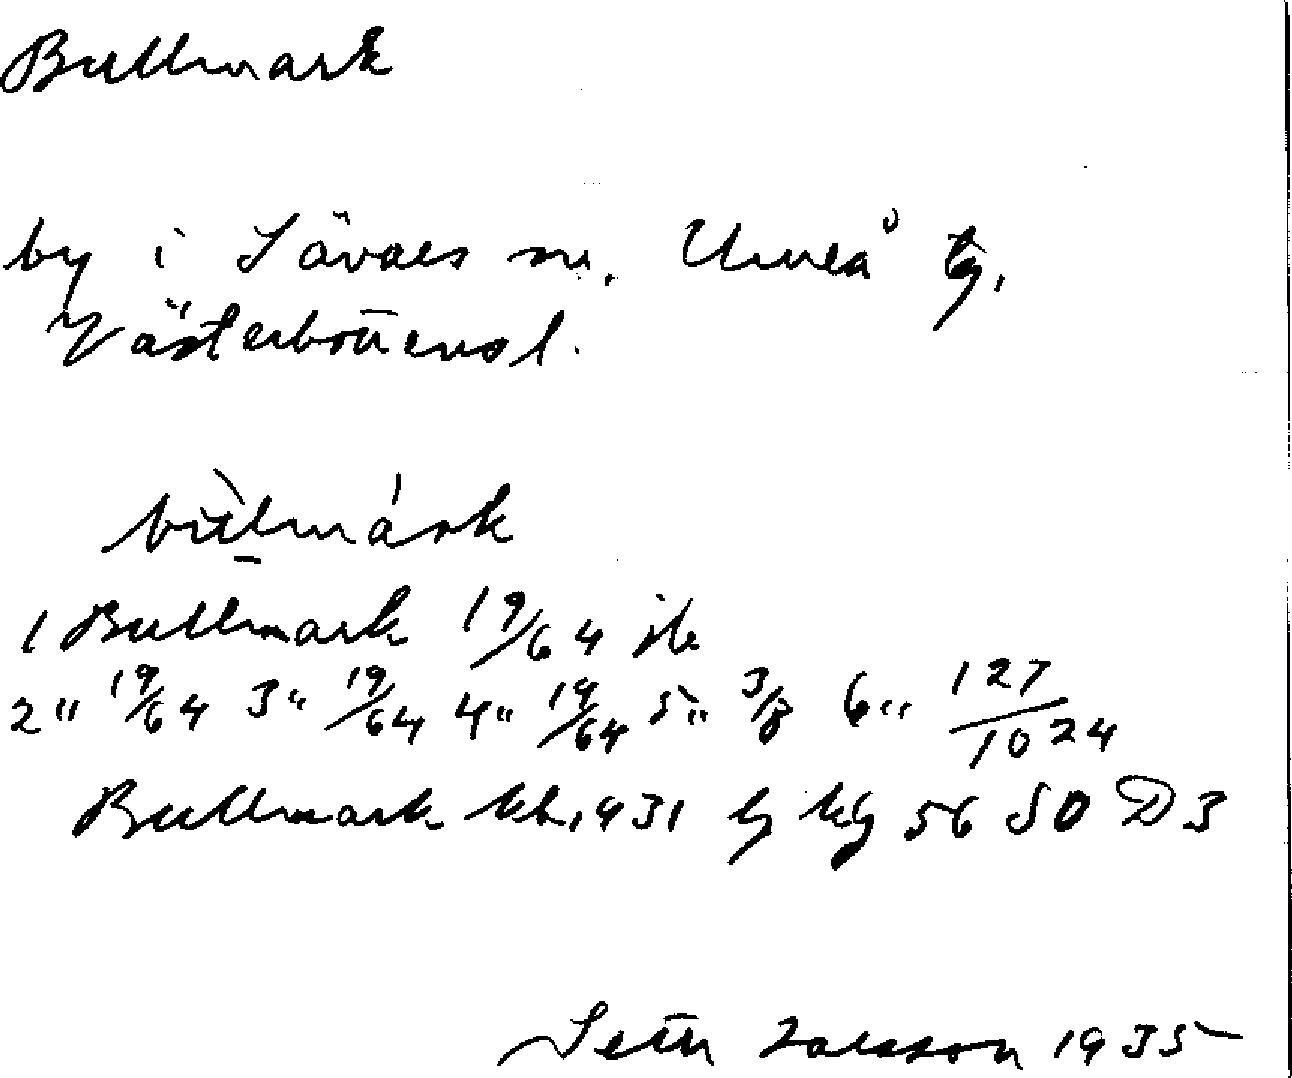 Bullmark
by i Sävars sn. Umeå tg.
Västerbottensl.
bulmark
1 Bullmark 19/64 jb
2 " 19/64 3 " 19/64 4 " 19/64 5 " 3/8 6 " 127/1024
Bullmark kb 1931 by kg 56 SO D3
Seth Larsson 1935